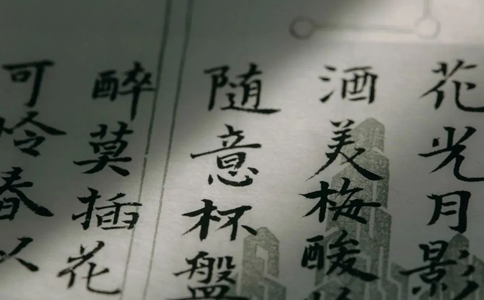 花光月影
酒美梅酸
随意杯盤
醉莫插花
可怜春